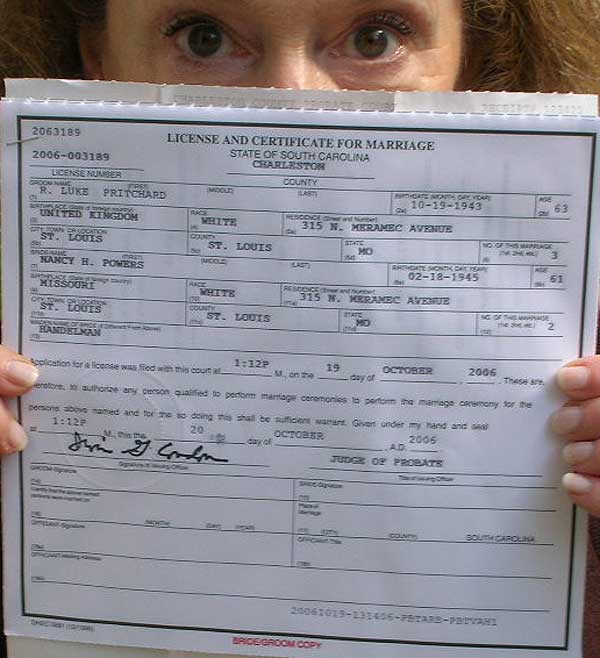 2063189
LICENSE AND CERTIFICATE FOR MARRIAGE
2006-003189 STATE OF SOUTH CAROLINA
CHARLESTON
LICENSE NUMBER COUNTY
GROOM-NAME (FIRST) (MIDDLE) (LAST) BIRTHDATE (MONTH, DAY, YEAR) AGE
R. LUKE PRITCHARD 10-19-1943 63
BIRTHPLACE (State or foreign country) RACE RESIDENCE (Street and Number)
UNITED KINGDOM WHITE 315 N. MERAMEC AVENUE
CITY, TOWN, OR LOCATION COUNTY STATE NO. OF THIS MARRIAGE
ST. LOUIS ST. LOUIS MO (1st, 2nd, etc.) 3
BRIDE-NAME (FIRST) (MIDDLE) (LAST) BIRTHDATE (MONTH, DAY, YEAR) AGE
NANCY H. POWERS 02-18-1945 61
BIRTHPLACE (State or foreign country) RACE RESIDENCE (Street and Number)
MISSOURI WHITE 315 N. MERAMEC AVENUE
CITY, TOWN, OR LOCATION COUNTY STATE NO. OF THIS MARRIAGE
ST. LOUIS ST. LOUIS MO (1st, 2nd, etc.) 2
MAIDEN NAME OF BRIDE (If Different From Above)
HANDELMAN
Application for a license was filed with this court at 1:12P M., on the 19 day of OCTOBER, 2006. These are,
therefore, to authorize any person qualified to perform marriage ceremonies to perform the marriage ceremony for the
persons above named and for the so doing this shall be sufficient warrant. Given under my hand and seal
at 1:12P M., this the 20 day of OCTOBER, A.D. 2006
JUDGE OF PROBATE
Signature of Issuing Officer Title of Issuing Officer
GROOM-Signature BRIDE-Signature
I certify that the above named
persons were married on
(MONTH) (DAY) (YEAR)
Place of
Marriage
(CITY) (COUNTY) SOUTH CAROLINA
OFFICIANT-Signature OFFICIANT Title
OFFICIANT-Mailing Address
20061019-131406-PBTARB-PBTVAH1
BRIDE/GROOM COPY